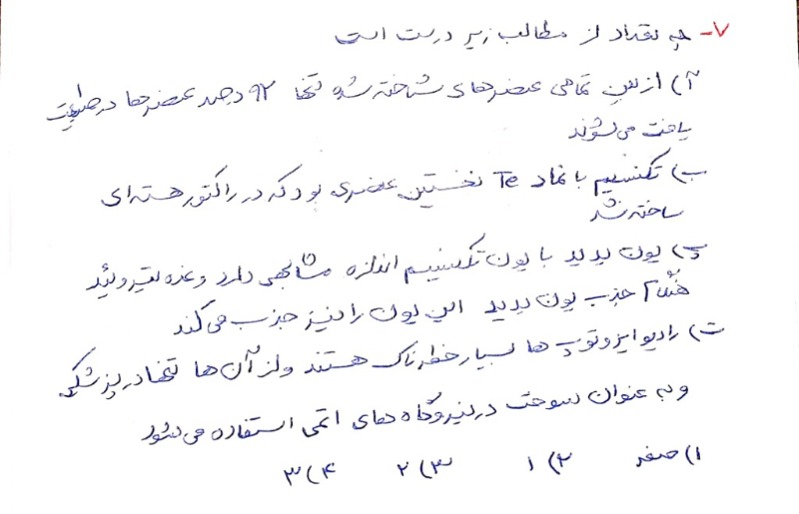 ۷- چه تعداد از مطالب زیر درست است
آ) از بین تمامی عنصرهای شناخته شده تنها ۹۲ درصد عنصرها در طبیعت
یافت می‌شوند
ب) تکنسیم با نماد Te نخستین عنصری بود که در راکتور هسته‌ای
ساخته شد
پ) یون یدید با یون تکنسیم اندازه مشابهی دارد و غده تیروئید
هنگام جذب یون یدید این یون را نیز جذب می‌کند
ت) رادیوایزوتوپ ها بسیار خطرناک هستند و از آن‌ها تنها در پزشکی
و به عنوان سوخت در نیروگاه های اتمی استفاده می‌شود
۱) صفر ۲) ۱ ۳) ۲ ۴) ۳